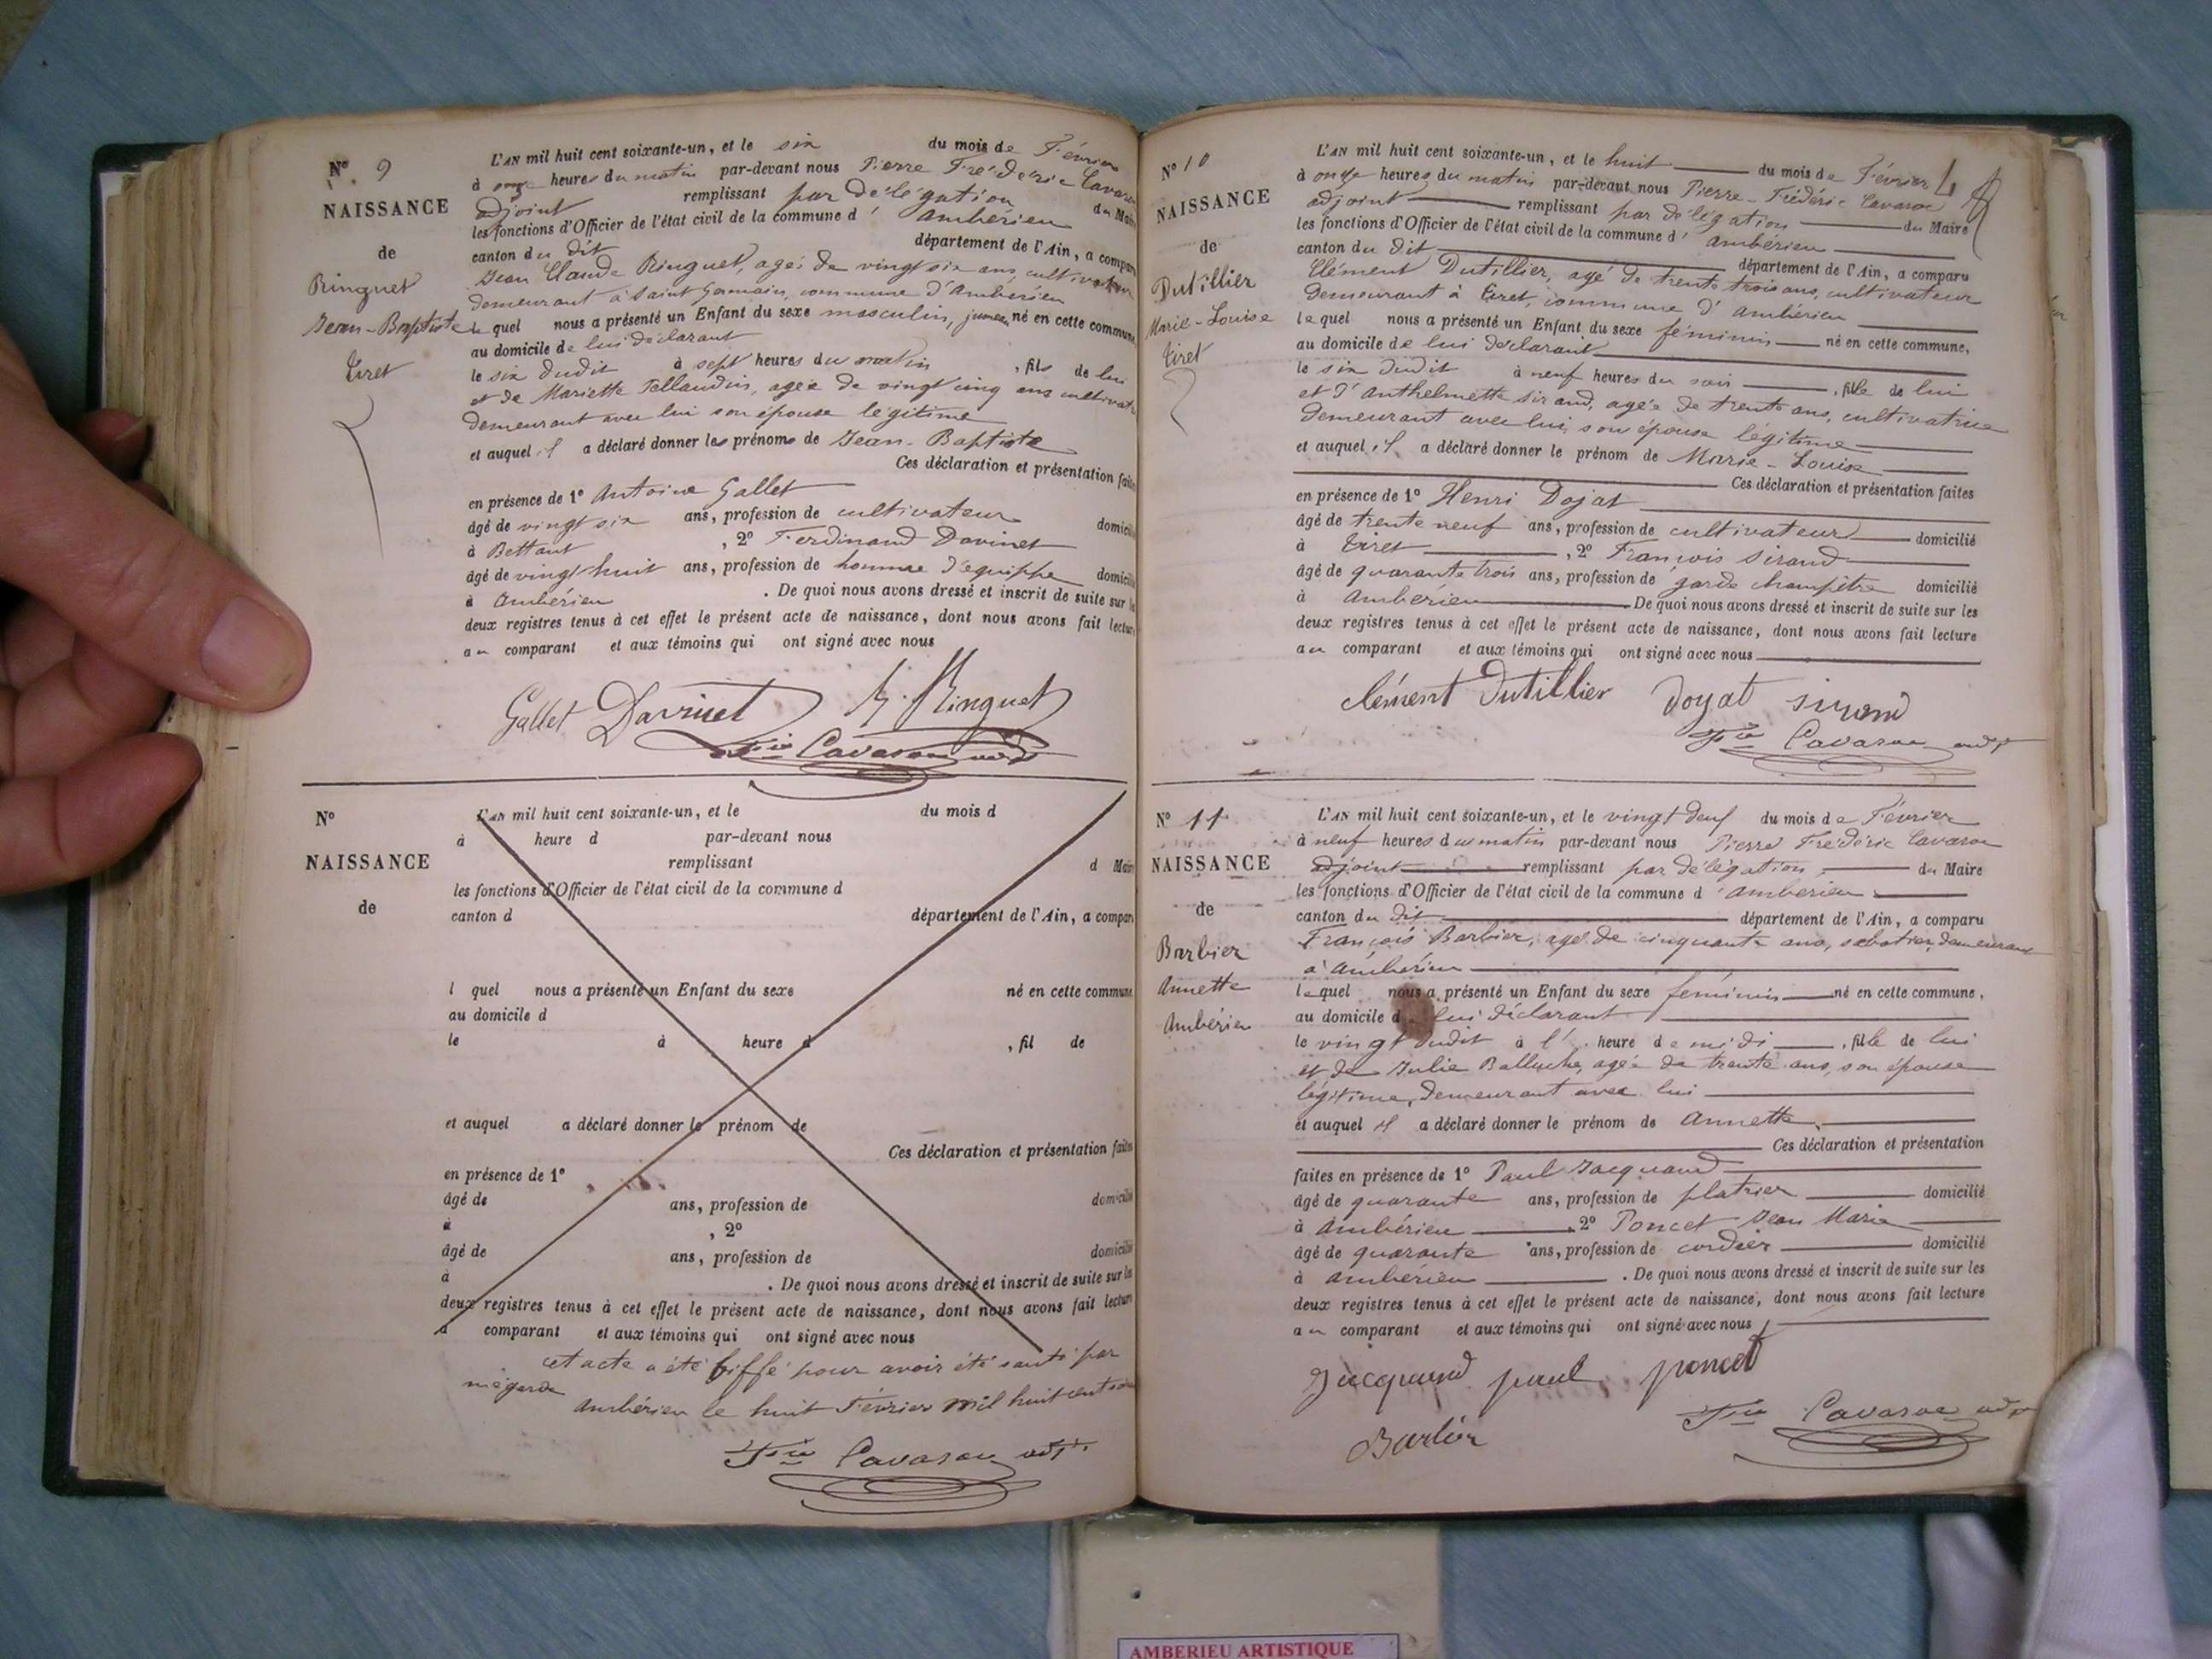 Nº 9
NAISSANCE
de
Ringuet
Jean-Baptiste
Tiret
L'AN mil huit cent soixante-un, et le six du mois de Février
à onze heures du matin par-devant nous Pierre Frédéric Cavaroc
adjoint remplissant par délégation du Maire
les fonctions d'Officier de l'état civil de la commune d' Ambérieu
canton du dit département de l'Ain, a comparu
Jean Claude Ringuet, agé de vingt six ans, cultivateur
demeurant à Saint Germain, commune d'Ambérieu
lequel nous a présenté un Enfant du sexe masculin, jumeau né en cette commune,
au domicile de lui déclarant
le six dudit à sept heures du matin , fils de lui
et de Mariette Tellaudin, agée de vingt cinq ans cultivat
demeurant avec lui son épouse légitime
et auquel il a déclaré donner les prénoms de Jean-Baptiste
Ces déclaration et présentation faites
en présence de 1º Antoine Gallet
âgé de vingt six ans, profession de cultivateur domicilié
à Bettant , 2º Ferdinand Davinet
âgé de vingt huit ans, profession de homme d'équippe domicilié
à Ambérieu . De quoi nous avons dressé et inscrit de suite sur les
deux registres tenus à cet effet le présent acte de naissance, dont nous avons fait lecture
au comparant et aux témoins qui ont signé avec nous
Gallet Davinet Ringuet
Cavaroc adjt
Nº
NAISSANCE
de
L'AN mil huit cent soixante-un, et le du mois d
à heure d par-devant nous
remplissant d Maire
les fonctions d'Officier de l'état civil de la commune d
canton d département de l'Ain, a comparu
l quel nous a présenté un Enfant du sexe né en cette commune,
au domicile d
le à heure d , fil de
et auquel a déclaré donner le prénom de
Ces déclaration et présentation faites
en présence de 1º
âgé de ans, profession de domicilié
à , 2º
âgé de ans, profession de domicilié
à . De quoi nous avons dressé et inscrit de suite sur les
deux registres tenus à cet effet le présent acte de naissance, dont nous avons fait lecture
a comparant et aux témoins qui ont signé avec nous
cet acte a été biffé pour avoir été sauté par
mégarde
Ambérieu le huit Février mil huit cent soix
Fic Cavaroc adjt
Nº 10
NAISSANCE
de
Dutillier
Marie-Louise
Tiret
L'AN mil huit cent soixante-un, et le huit du mois de Février
à onze heures du matin par-devant nous Pierre-Frédéric Cavaroc
adjoint remplissant par délégation du Maire
les fonctions d'Officier de l'état civil de la commune d' Ambérieu
canton du dit département de l'Ain, a comparu
Clément Dutillier, agé de trente trois ans, cultivateur
demeurant à Tiret, commune d'Ambérieu
lequel nous a présenté un Enfant du sexe féminin né en cette commune,
au domicile de lui déclarant
le six dudit à neuf heures du soir , fille de lui
et d'Anthelmette Sirand, agée de trente ans, cultivatrice
demeurant avec lui, son épouse légitime
et auquel il a déclaré donner le prénom de Marie-Louise
Ces déclaration et présentation faites
en présence de 1º Henri Dojat
âgé de trente neuf ans, profession de cultivateur domicilié
à Tiret , 2º François Sirand
âgé de quarante trois ans, profession de garde champêtre domicilié
à Ambérieu De quoi nous avons dressé et inscrit de suite sur les
deux registres tenus à cet effet le présent acte de naissance, dont nous avons fait lecture
au comparant et aux témoins qui ont signé avec nous
clément Dutillier Doyat sirand
Fic Cavaroc adjt
Nº 11
NAISSANCE
de
Barbier
Annette
Ambérieu
L'AN mil huit cent soixante-un, et le vingt deux du mois de Février
à neuf heures du matin par-devant nous Pierre Frédéric Cavaroc
adjoint remplissant par délégation du Maire
les fonctions d'Officier de l'état civil de la commune d'Ambérieu
canton du dit département de l'Ain, a comparu
François Barbier, agé de cinquante ans, sabotier, demeurant
à Ambérieu
lequel nous a présenté un Enfant du sexe féminin né en cette commune,
au domicile de lui déclarant
le vingt dudit à l' heure de midi , fille de lui
et de Julie Balluche, agée de trente ans, son épouse
légitime, demeurant avec lui
et auquel il a déclaré donner le prénom de Annette
Ces déclaration et présentation
faites en présence de 1º Paul Jacquand
âgé de quarante ans, profession de platrier domicilié
à Ambérieu , 2º Poncet Jean Marie
âgé de quarante ans, profession de cordier domicilié
à Ambérieu . De quoi nous avons dressé et inscrit de suite sur les
deux registres tenus à cet effet le présent acte de naissance, dont nous avons fait lecture
au comparant et aux témoins qui ont signé avec nous
Jacquand paul poncet
Fic Cavaroc adjt
Barbier
AMBERIEU ARTISTIQUE